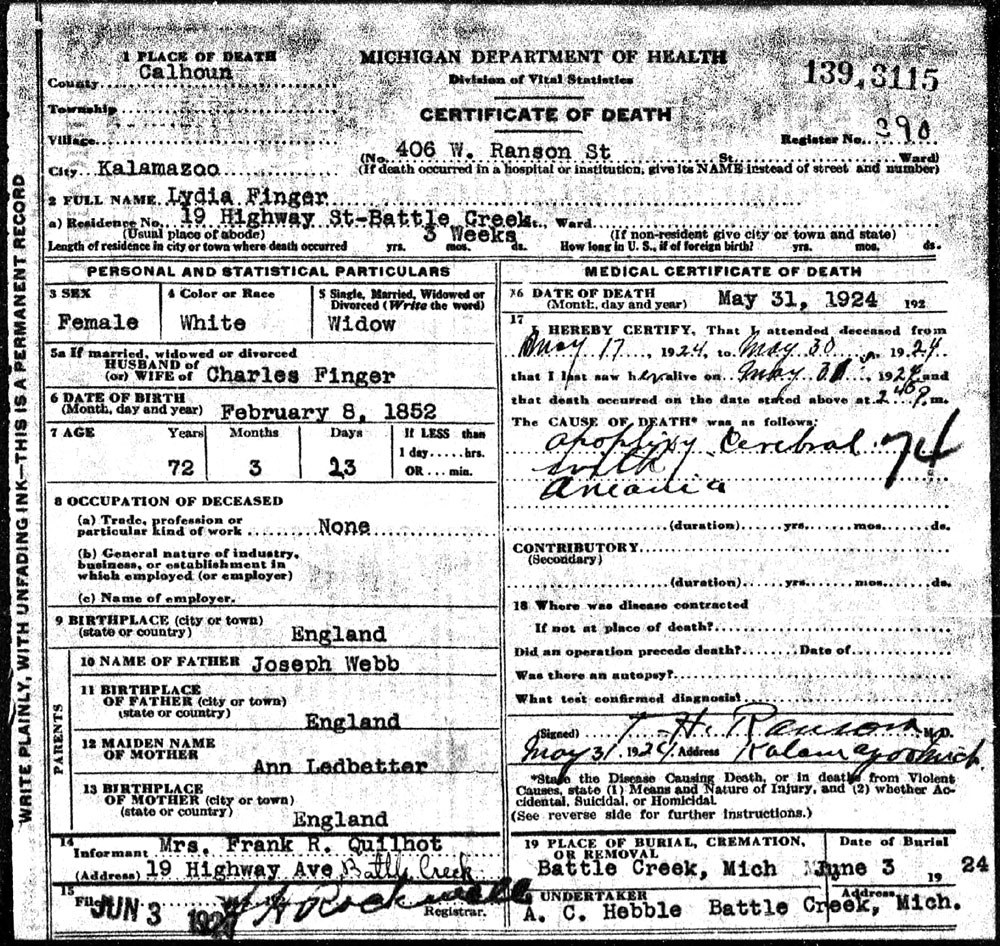 WRITE PLAINLY, WITH UNFADING INK—THIS IS A PERMANENT RECORD
1 PLACE OF DEATH
County Calhoun
Township
Village
City Kalamazoo
MICHIGAN DEPARTMENT OF HEALTH
Division of Vital Statistics
CERTIFICATE OF DEATH
139,3115
Register No. 390
(No. 406 W. Ranson St St. Ward)
(If death occurred in a hospital or institution, give its NAME instead of street and number)
2 FULL NAME Lydia Finger
a) Residence No. 19 Highway St-Battle Creek St., Ward
(Usual place of abode) (If non-resident give city or town and state)
3 Weeks
Length of residence in city or town where death occurred yrs. mos. ds. How long in U. S., if of foreign birth? yrs. mos. ds.
PERSONAL AND STATISTICAL PARTICULARS
3 SEX
Female
4 Color or Race
White
5 Single, Married, Widowed or
Divorced (Write the word)
Widow
5a If married, widowed or divorced
HUSBAND of
(or) WIFE of Charles Finger
6 DATE OF BIRTH
(Month, day and year) February 8, 1852
7 AGE Years Months Days If LESS than
1 day....hrs.
72 3 23 OR....min.
8 OCCUPATION OF DECEASED
(a) Trade, profession or
particular kind of work None
(b) General nature of industry,
business, or establishment in
which employed (or employer)
(c) Name of employer.
9 BIRTHPLACE (city or town)
(state or country) England
PARENTS
10 NAME OF FATHER Joseph Webb
11 BIRTHPLACE
OF FATHER (city or town)
(state or country)
England
12 MAIDEN NAME
OF MOTHER
Ann Ledbetter
13 BIRTHPLACE
OF MOTHER (city or town)
(state or country)
England
14
Informant Mrs. Frank R. Quilhot
(Address) 19 Highway Ave Battle Creek
15
Filed JUN 3 1924 Rockwell
Registrar.
MEDICAL CERTIFICATE OF DEATH
16 DATE OF DEATH
(Month, day and year) May 31, 1924 192
17
I HEREBY CERTIFY, That I attended deceased from
May 17, 1924, to May 30, 1924
that I last saw her alive on May 31, 1924 and
that death occurred on the date stated above at 2 P. m.
The CAUSE OF DEATH* was as follows:
Cerebral 74
(duration) yrs. mos. ds.
CONTRIBUTORY
(Secondary)
(duration) yrs. mos. ds.
18 Where was disease contracted
If not at place of death?
Did an operation precede death? Date of
Was there an autopsy?
What test confirmed diagnosis?
(Signed) H. Ransom M. D.
May 31, 1924 Address Kalamazoo Mich.
*State the Disease Causing Death, or in deaths from Violent
Causes, state (1) Means and Nature of Injury, and (2) whether Ac-
cidental, Suicidal, or Homicidal.
(See reverse side for further instructions.)
19 PLACE OF BURIAL, CREMATION,
OR REMOVAL
Battle Creek, Mich
Date of Burial
June 3 19 24
UNDERTAKER
A. C. Hebble
Address
Battle Creek, Mich.